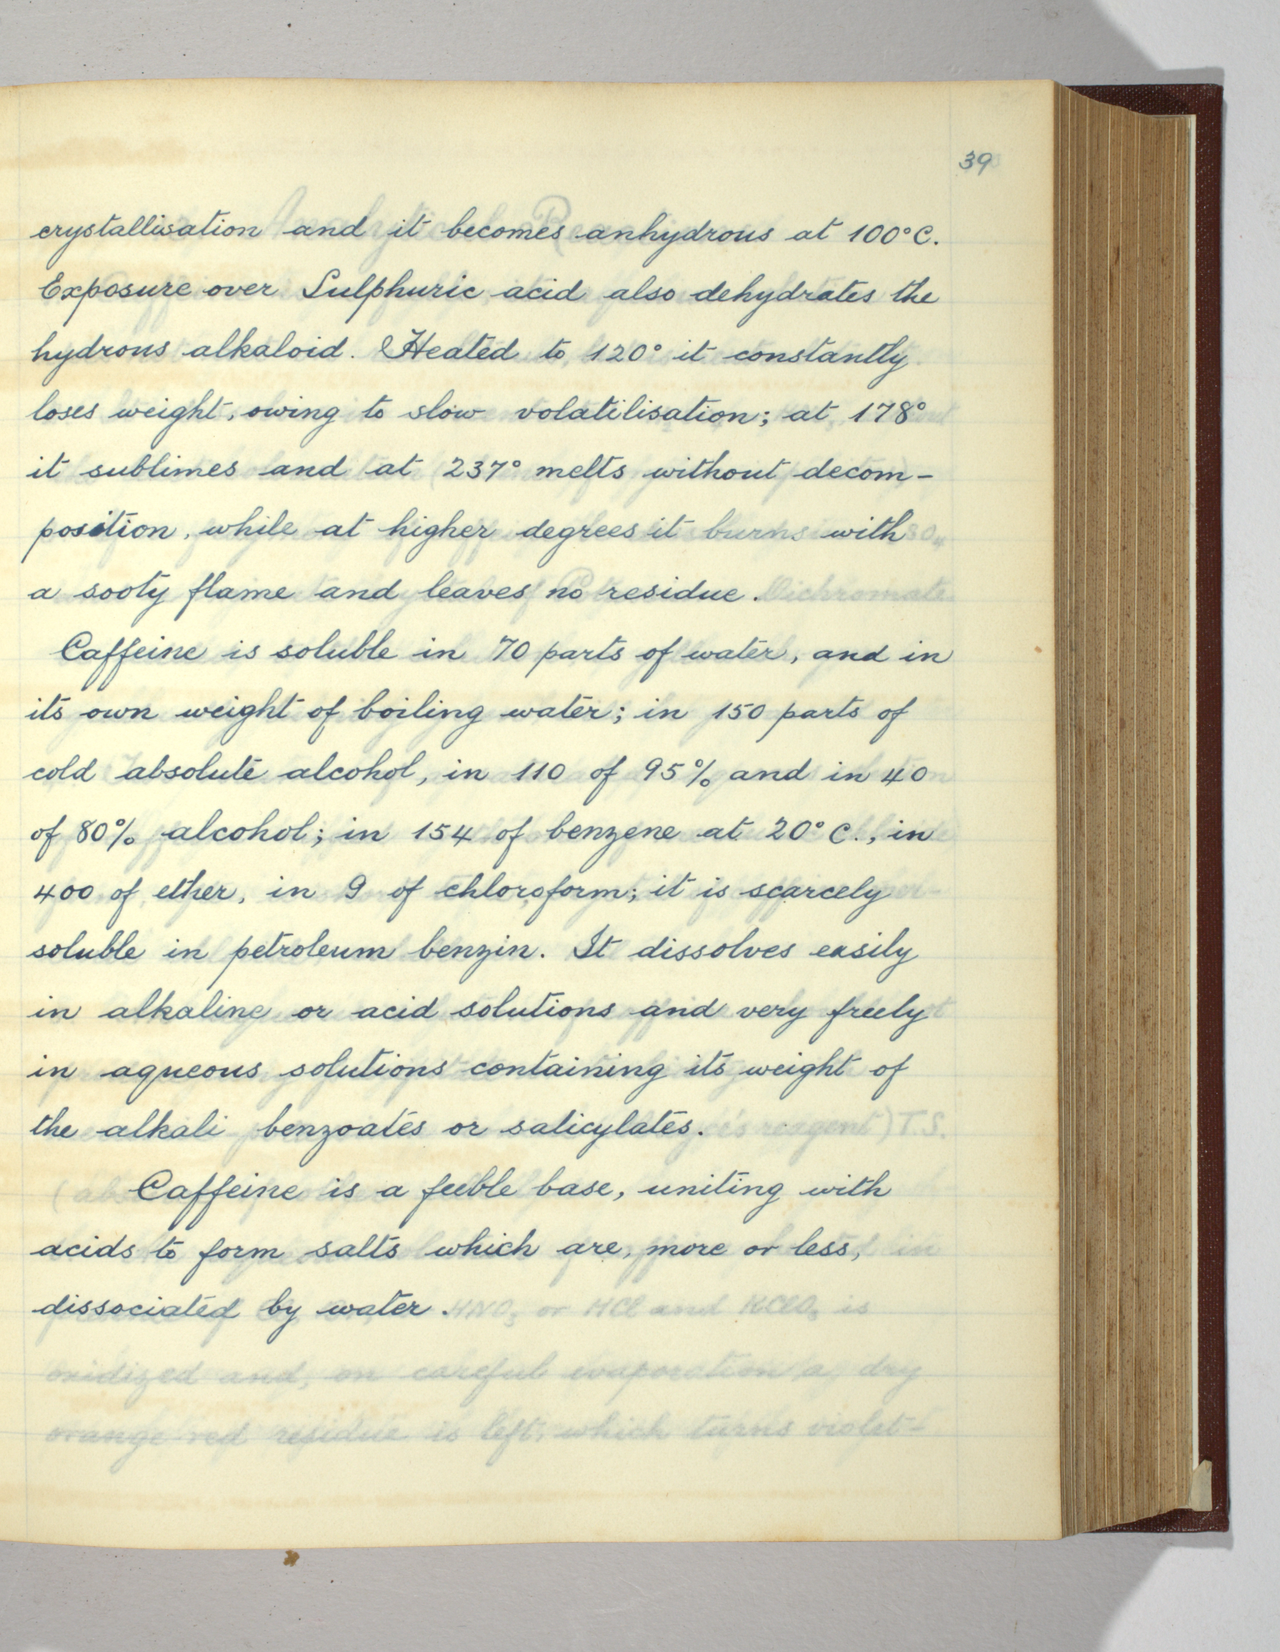 39
crystallisation and it becomes anhydrous at 100°C.
Exposure over Sulphuric acid also dehydrates the
hydrous alkaloid. Heated to 120° it constantly
loses weight, owing to slow volatilisation; at 178°
it sublimes and at 237° melts without decom-
position, while at higher degrees it burns with
a sooty flame and leaves no residue.
Caffeine is soluble in 70 parts of water, and in
its own weight of boiling water; in 150 parts of
cold absolute alcohol, in 110 of 95% and in 40
of 80% alcohol; in 154 of benzene at 20°C., in
400 of ether, in 9 of chloroform; it is scarcely
soluble in petroleum benzin. It dissolves easily
in alkaline or acid solutions and very freely
in aqueous solutions containing its weight of
the alkali benzoates or salicylates.
Caffeine is a feeble base, uniting with
acids to form salts which are, more or less,
dissociated by water. HNO₃ or HCl and KClO₃ is
oxidized and, on careful evaporation a dry
orange red residue is left, which turns violet-